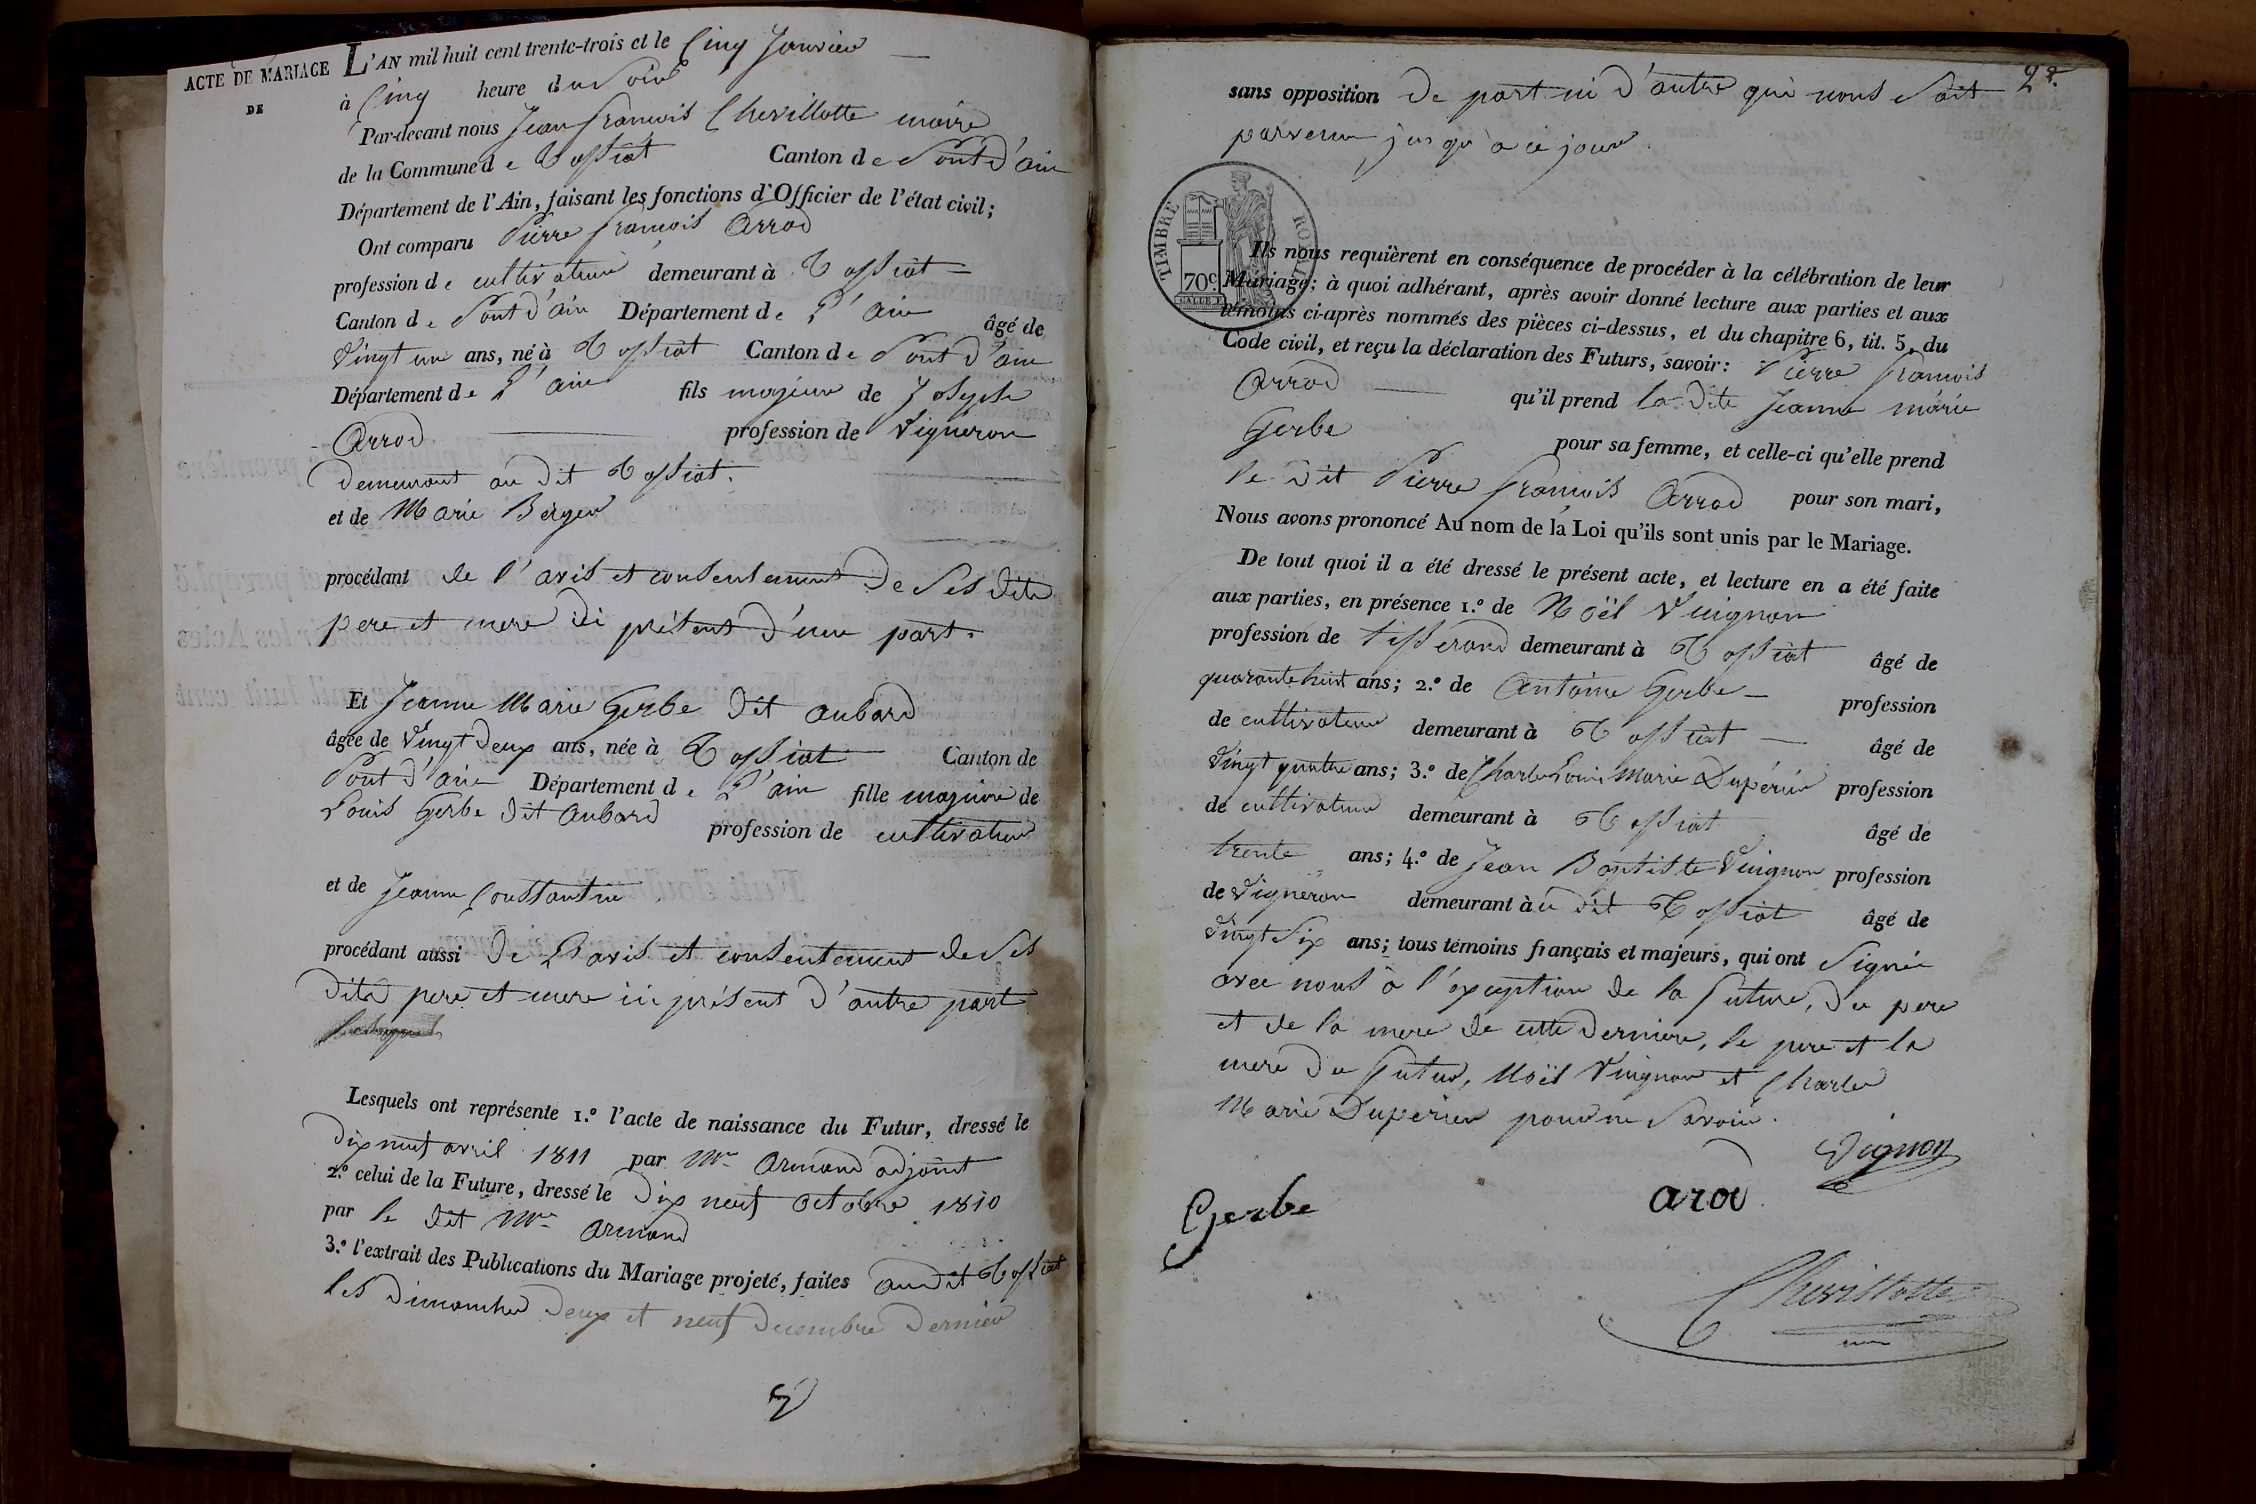 ACTE DE MARIAGE
DE
L'AN mil huit cent trente-trois et le Cinq Janvier
à Cinq heure du Soir
Par-devant nous Jean françois Chevillotte maire
de la Commune de Tossiat Canton de Pont d'ain
Département de l'Ain, faisant les fonctions d'Officier de l'état civil;
Ont comparu Pierre françois Arrod
profession de cultivateur demeurant à Tossiat
Canton de Pont d'ain Département de L'ain âgé de
Vingt un ans, né à Tossiat Canton de Pont d'ain
Département de L'ain fils majeur de Joseph
Arrod profession de Vigneron
demeurant au dit Tossiat.
et de Marie Berger
procédant de l'avis et consentement de Ses dits
pere et mere ici présents d'une part.
Et Jeanne Marie Gerbe dit aubard
âgée de Vingt deux ans, née à Tossiat Canton de
Pont d'ain Département de L'ain fille majeure de
Louis Gerbe dit Aubard profession de cultivateur
et de Jeanne Constantin
procédant aussi de L'avis et consentement de Ses
dits pere et mere ici présent d'autre part
Lesquels ont représente 1.º l'acte de naissance du Futur, dressé le
dix neuf avril 1811 par Mr Armand adjoint
2.º celui de la Future, dressé le dix neuf octobre 1810
par le dit Mr Armand
3.º l'extrait des Publications du Mariage projeté, faites audit Tossiat
les dimanches deux et neuf decembre dernier
2e.
sans opposition de part ni d'autre qui nous Soit
parvenu jusqu'à ce jour.
TIMBRE ROYAL
70c.
Ils nous requièrent en conséquence de procéder à la célébration de leur
Mariage; à quoi adhérant, après avoir donné lecture aux parties et aux
témoins ci-après nommés des pièces ci-dessus, et du chapitre 6, tit. 5, du
Code civil, et reçu la déclaration des Futurs, savoir: Pierre françois
Arrod qu'il prend la dite Jeanne marie
Gerbe pour sa femme, et celle-ci qu'elle prend
le dit Pierre françois Arrod pour son mari,
Nous avons prononcé Au nom de la Loi qu'ils sont unis par le Mariage.
De tout quoi il a été dressé le présent acte, et lecture en a été faite
aux parties, en présence 1.º de Noël Vuignon
profession de tisserand demeurant à Tossiat âgé de
quarante huit ans; 2.º de Antoine Gerbe profession
de cultivateur demeurant à Tossiat âgé de
Vingt quatre ans; 3.º de Charles Louis Marie Dupérier profession
de cultivateur demeurant à Tossiat âgé de
trente ans; 4.º de Jean Baptiste Vuignon profession
de Vigneron demeurant à dit Tossiat âgé de
Vingt Six ans; tous témoins français et majeurs, qui ont Signée
avec nous à l'exception de la future, du pere
et de la mere de cette derniere, le pere et la
mere du futur, Noël Vuignon et Charles
Marie Duperier pour ne Savoir.
Vignon
Gerbe
arod
Chevillotte